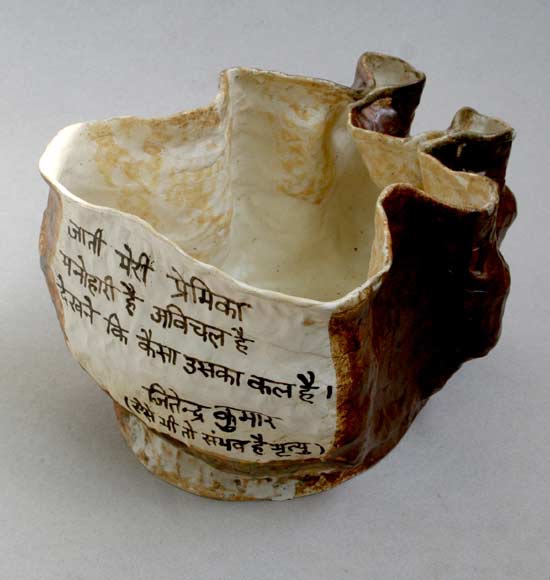 जाती मेरी प्रेमिका
मनोहारी है अविचल है
देखने कि कैसा उसका कल है।
जितेन्द्र कुमार
(ऐसे भी तो संभव है मृत्यु)